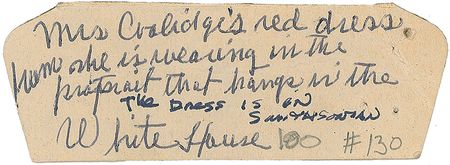 Mrs Coolidge's red dress
from she is wearing in the
portrait that hangs in the
THE DRESS IS IN
SMITHSONIAN
White House 100 #130